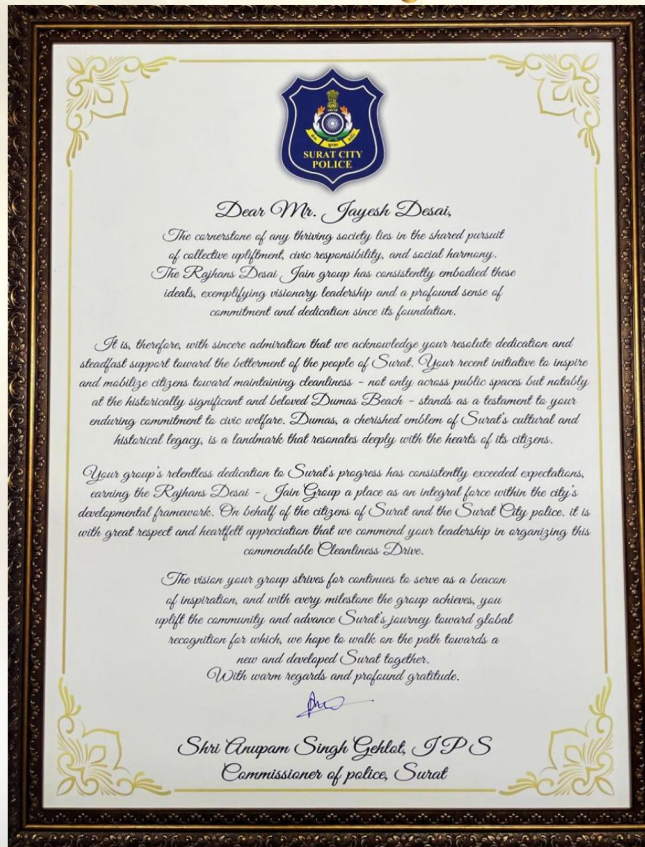 SURAT CITY
POLICE
Dear Mr. Jayesh Desai,
The cornerstone of any thriving society lies in the shared pursuit
of collective upliftment, civic responsibility, and social harmony.
The Rajhans Desai Jain group has consistently embodied these
ideals, exemplifying visionary leadership and a profound sense of
commitment and dedication since its foundation.
It is, therefore, with sincere admiration that we acknowledge your resolute dedication and
steadfast support toward the betterment of the people of Surat. Your recent initiative to inspire
and mobilize citizens toward maintaining cleantiness - not only across public spaces but notably
at the historically significant and beloved Dumas Beach - stands as a testament to your
enduring commitment to civic welfare. Dumas, a cherished emblem of Surat's cultural and
historical legacy, is a landmark that resonates deeply with the hearts of its citizens.
Your group's relentless dedication to Surat's progress has consistently exceeded expectations,
earning the Rajhans Desai - Jain Group a place as an integral force within the city's
developmental framework. On behalf of the citizens of Surat and the Surat City police, it is
with great respect and heartfelt appreciation that we commend your leadership in organizing this
commendable Cleantiness Drive.
The vision your group strives for continues to serve as a beacon
of inspiration, and with every milestone the group achieves, you
uplift the community and advance Surat's journey toward global
recognition for which, we hope to walk on the path towards a
new and developed Surat together.
With warm regards and profound gratitude.
Shri Anupam Singh Gehlot, I P S
Commissioner of police, Surat